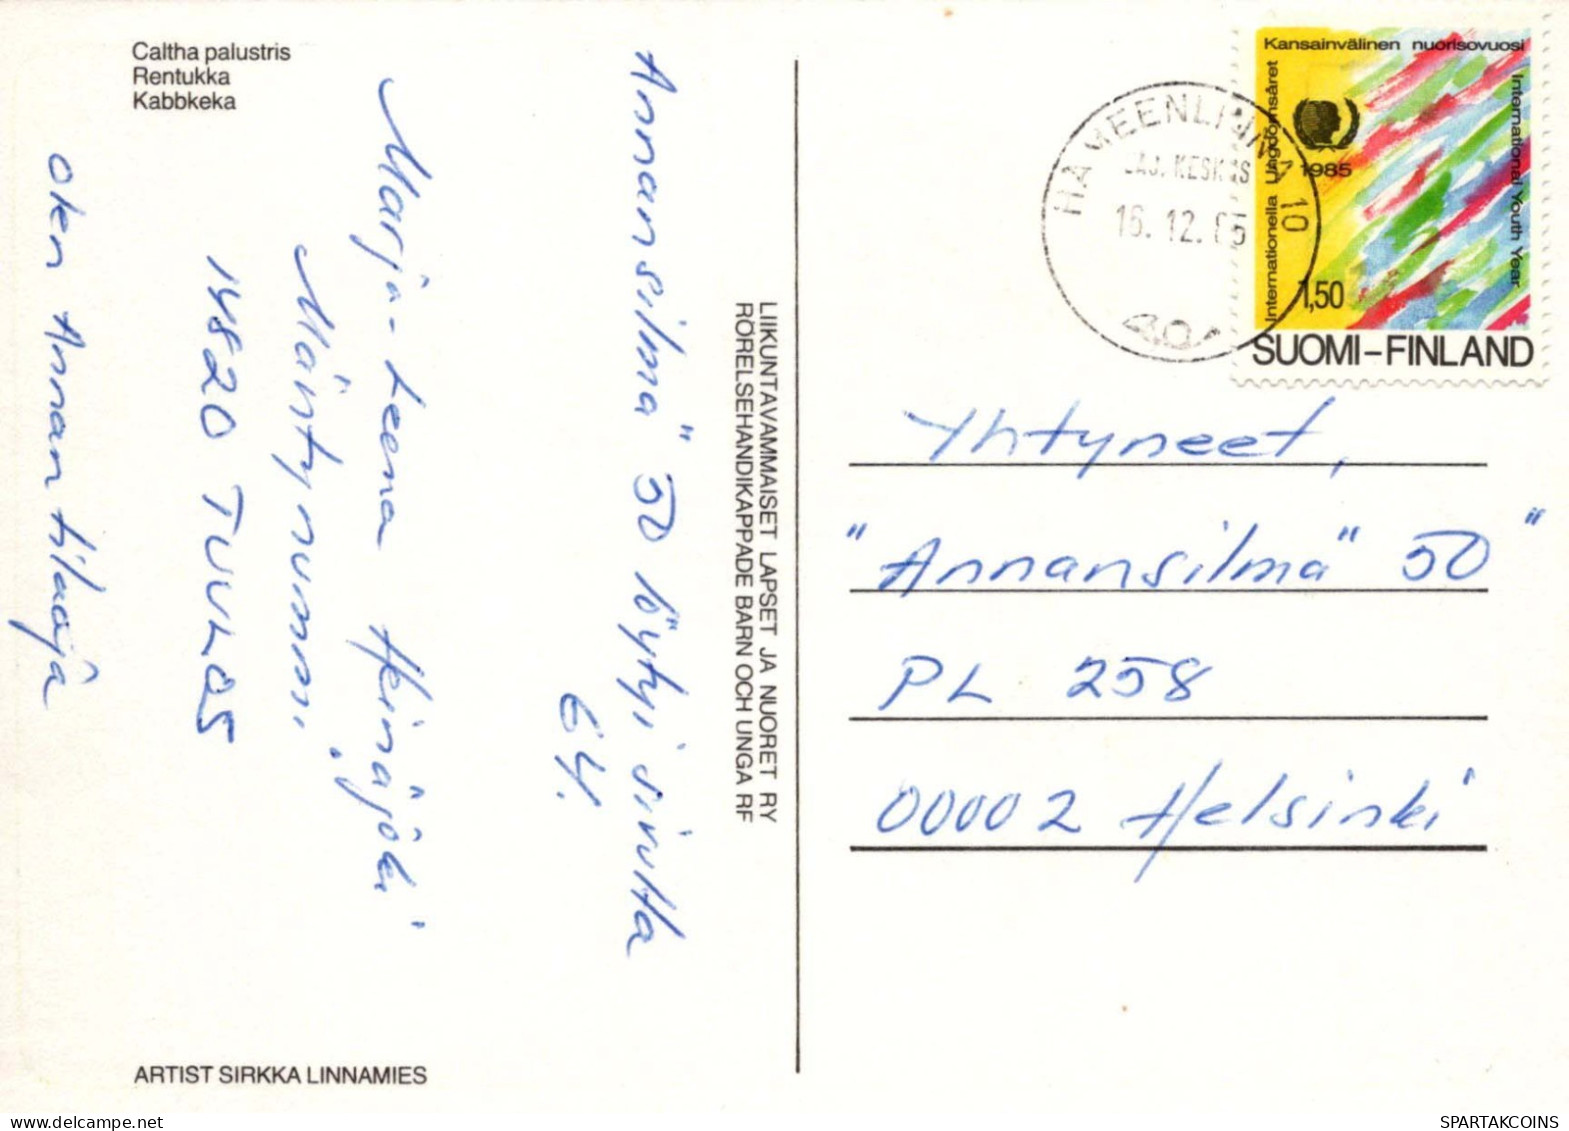 Caltha palustris
Rentukka
Kabbkeka
Annansilmä" 50 löytyi sivulta
64.
Marja-Leena Heinäjoki
Mäntynummi
14820 TUULOS
olen Annan tilaaja
ARTIST SIRKKA LINNAMIES
LIIKUNTAVAMMAISET LAPSET JA NUORET RY
RÖRELSEHANDIKAPPADE BARN OCH UNGA RF
HÄMEENLINNA 10
LAJ. KESKUS
16. 12. 85
Kansainvälinen nuorisovuosi
Internationella Ungdomsåret
International Youth Year
1985
1,50
SUOMI–FINLAND
Yhtyneet,
"Annansilmä" 50"
PL 258
00002 Helsinki
SPARTAKCOINS
SPARTAKCOINS.COM